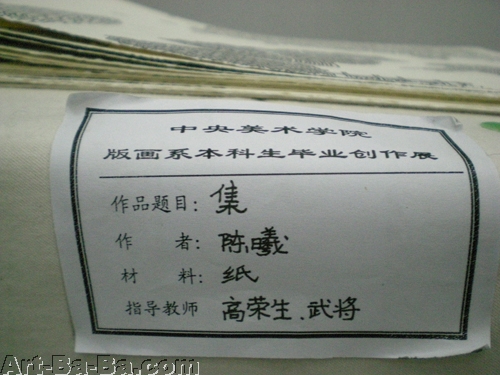 中央美术学院
版画系本科生毕业创作展
作品题目：集
作 者：陈曦
材 料：纸
指导教师 高荣生、武将
Art-Ba-Ba.com